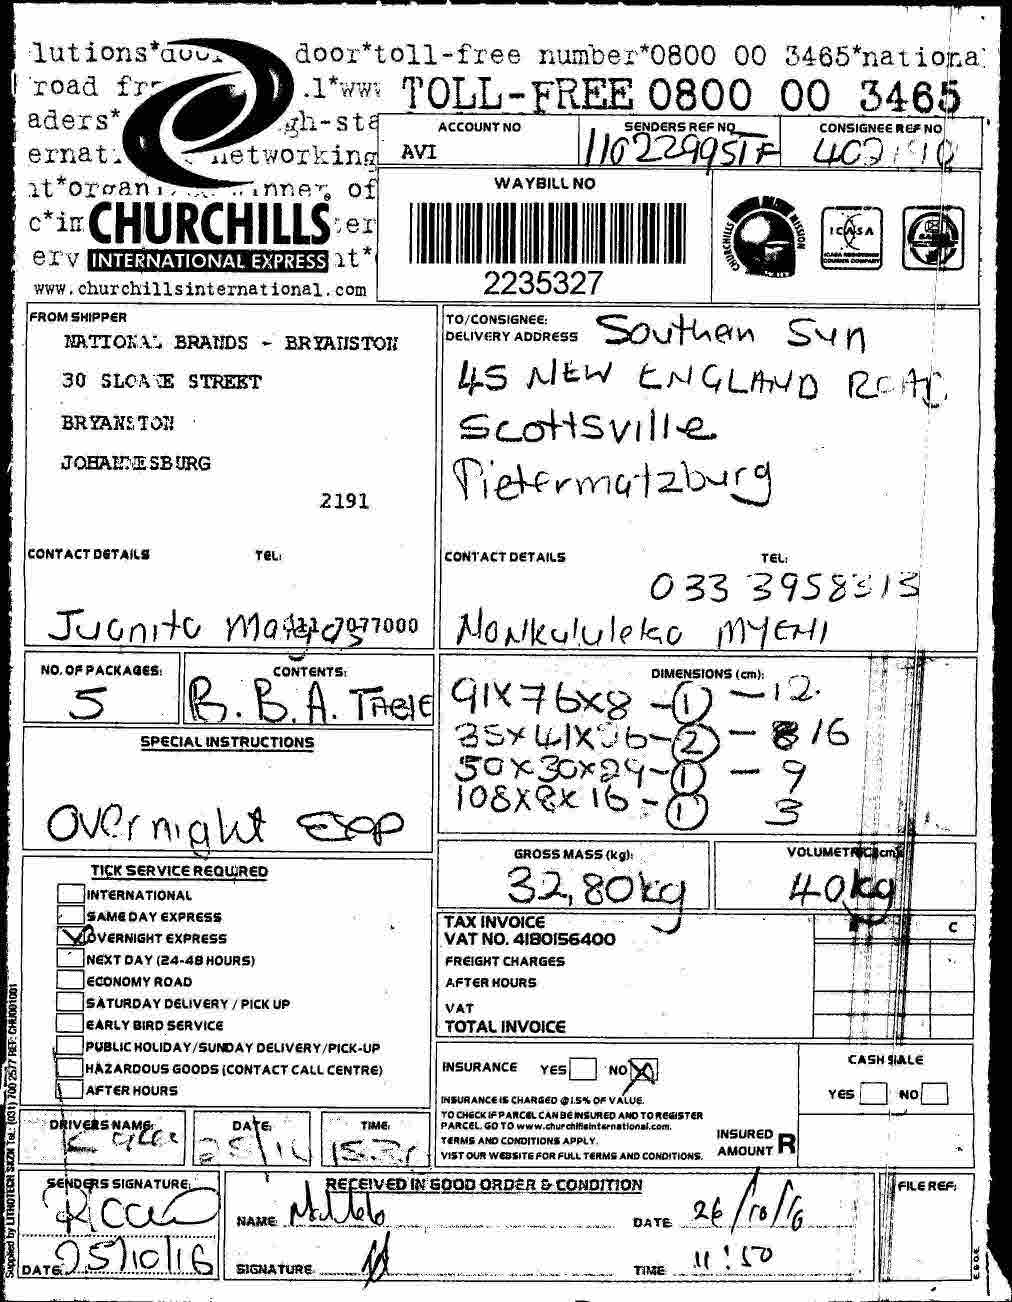 door*toll-free number*0800 00 3465*national
road
TOLL-FREE 0800 00 3465
aders*
networking
of
CHURCHILLS
INTERNATIONAL EXPRESS
www.churchillsinternational.com
ACCOUNT NO
AVI
SENDERS REF NO
CONSIGNEE REF NO
WAYBILL NO
2235327
CHURCHILLS MISSION
ICASA
FROM SHIPPER
NATIONAL BRANDS - BRYANSTON
30 SLOANE STREET
BRYANSTON
JOHANNESBURG
2191
CONTACT DETAILS TEL:
Juanita 7077000
TO/CONSIGNEE:
DELIVERY ADDRESS
Southern Sun
45 NEW ENGLAND ROAD
Scottsville
Pietermaritzburg
CONTACT DETAILS TEL:
033 3958313
Nonkululeko MYENI
NO. OF PACKAGES:
5
CONTENTS:
B.B.A. TABLE
DIMENSIONS (cm):
91X76X8 - 1 - 12.
35X41X36 - 2 - 16
50X30X29 - 1 - 9
108X8X16 - 1 3
SPECIAL INSTRUCTIONS
Overnight EXP
GROSS MASS (kg):
32,80kg
VOLUMETRIC(cm)
40kg
TICK SERVICE REQUIRED
INTERNATIONAL
SAME DAY EXPRESS
OVERNIGHT EXPRESS
NEXT DAY (24-48 HOURS)
ECONOMY ROAD
SATURDAY DELIVERY / PICK UP
EARLY BIRD SERVICE
PUBLIC HOLIDAY/SUNDAY DELIVERY/PICK-UP
HAZARDOUS GOODS (CONTACT CALL CENTRE)
AFTER HOURS
TAX INVOICE
VAT NO. 4180156400
C
FREIGHT CHARGES
AFTER HOURS
VAT
TOTAL INVOICE
INSURANCE YES NO
INSURANCE IS CHARGED @1.5% OF VALUE.
TO CHECK IF PARCEL CAN BE INSURED AND TO REGISTER
PARCEL. GO TO www.churchillsinternational.com.
TERMS AND CONDITIONS APPLY.
VIST OUR WEBSITE FOR FULL TERMS AND CONDITIONS.
INSURED
AMOUNT R
CASH SALE
YES NO
DRIVERS NAME:
DATE:
TIME:
SENDERS SIGNATURE:
DATE: 25/10/16
RECEIVED IN GOOD ORDER & CONDITION
NAME
DATE 26/10/16
SIGNATURE
TIME 11:50
FILE REF:
E.&O.E.
Supplied by LITHOTECH SXZN Tel.: (031) 700 2577 REF: CHU001001